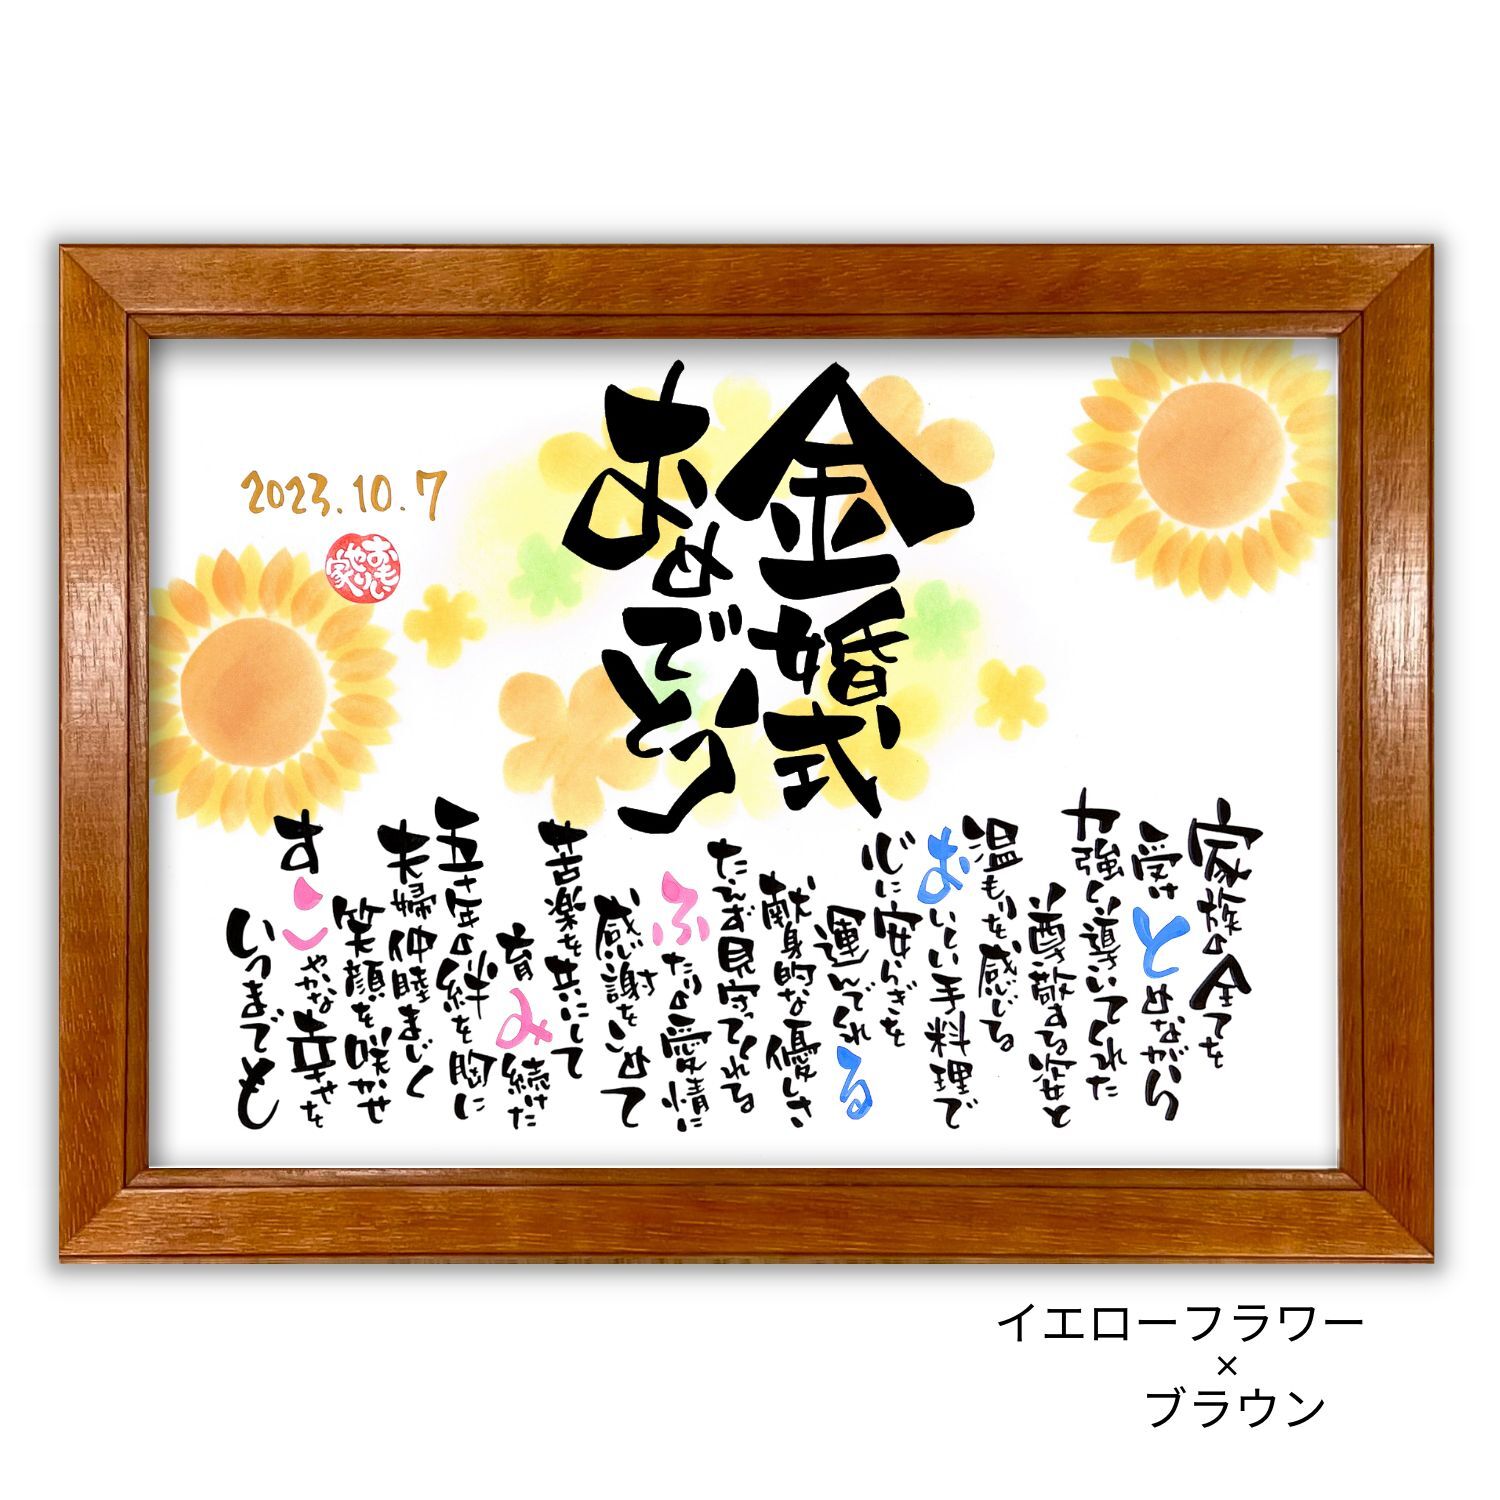 金婚式
おめでとう
2023.10.7
おもい
やり
家
家族の全てを
受けとめながら
力強く導いてくれた
尊敬する姿と
温もりを感じる
おいしい手料理で
心に安らぎを
運んでくれる
献身的な優しさ
たえず見守ってくれてる
ふたりの愛情に
感謝をこめて
苦楽を共にして
育み続けた
五十年の絆を胸に
夫婦仲睦まじく
笑顔を咲かせ
すこやかな幸せを
いつまでも
イエローフラワー
×
ブラウン